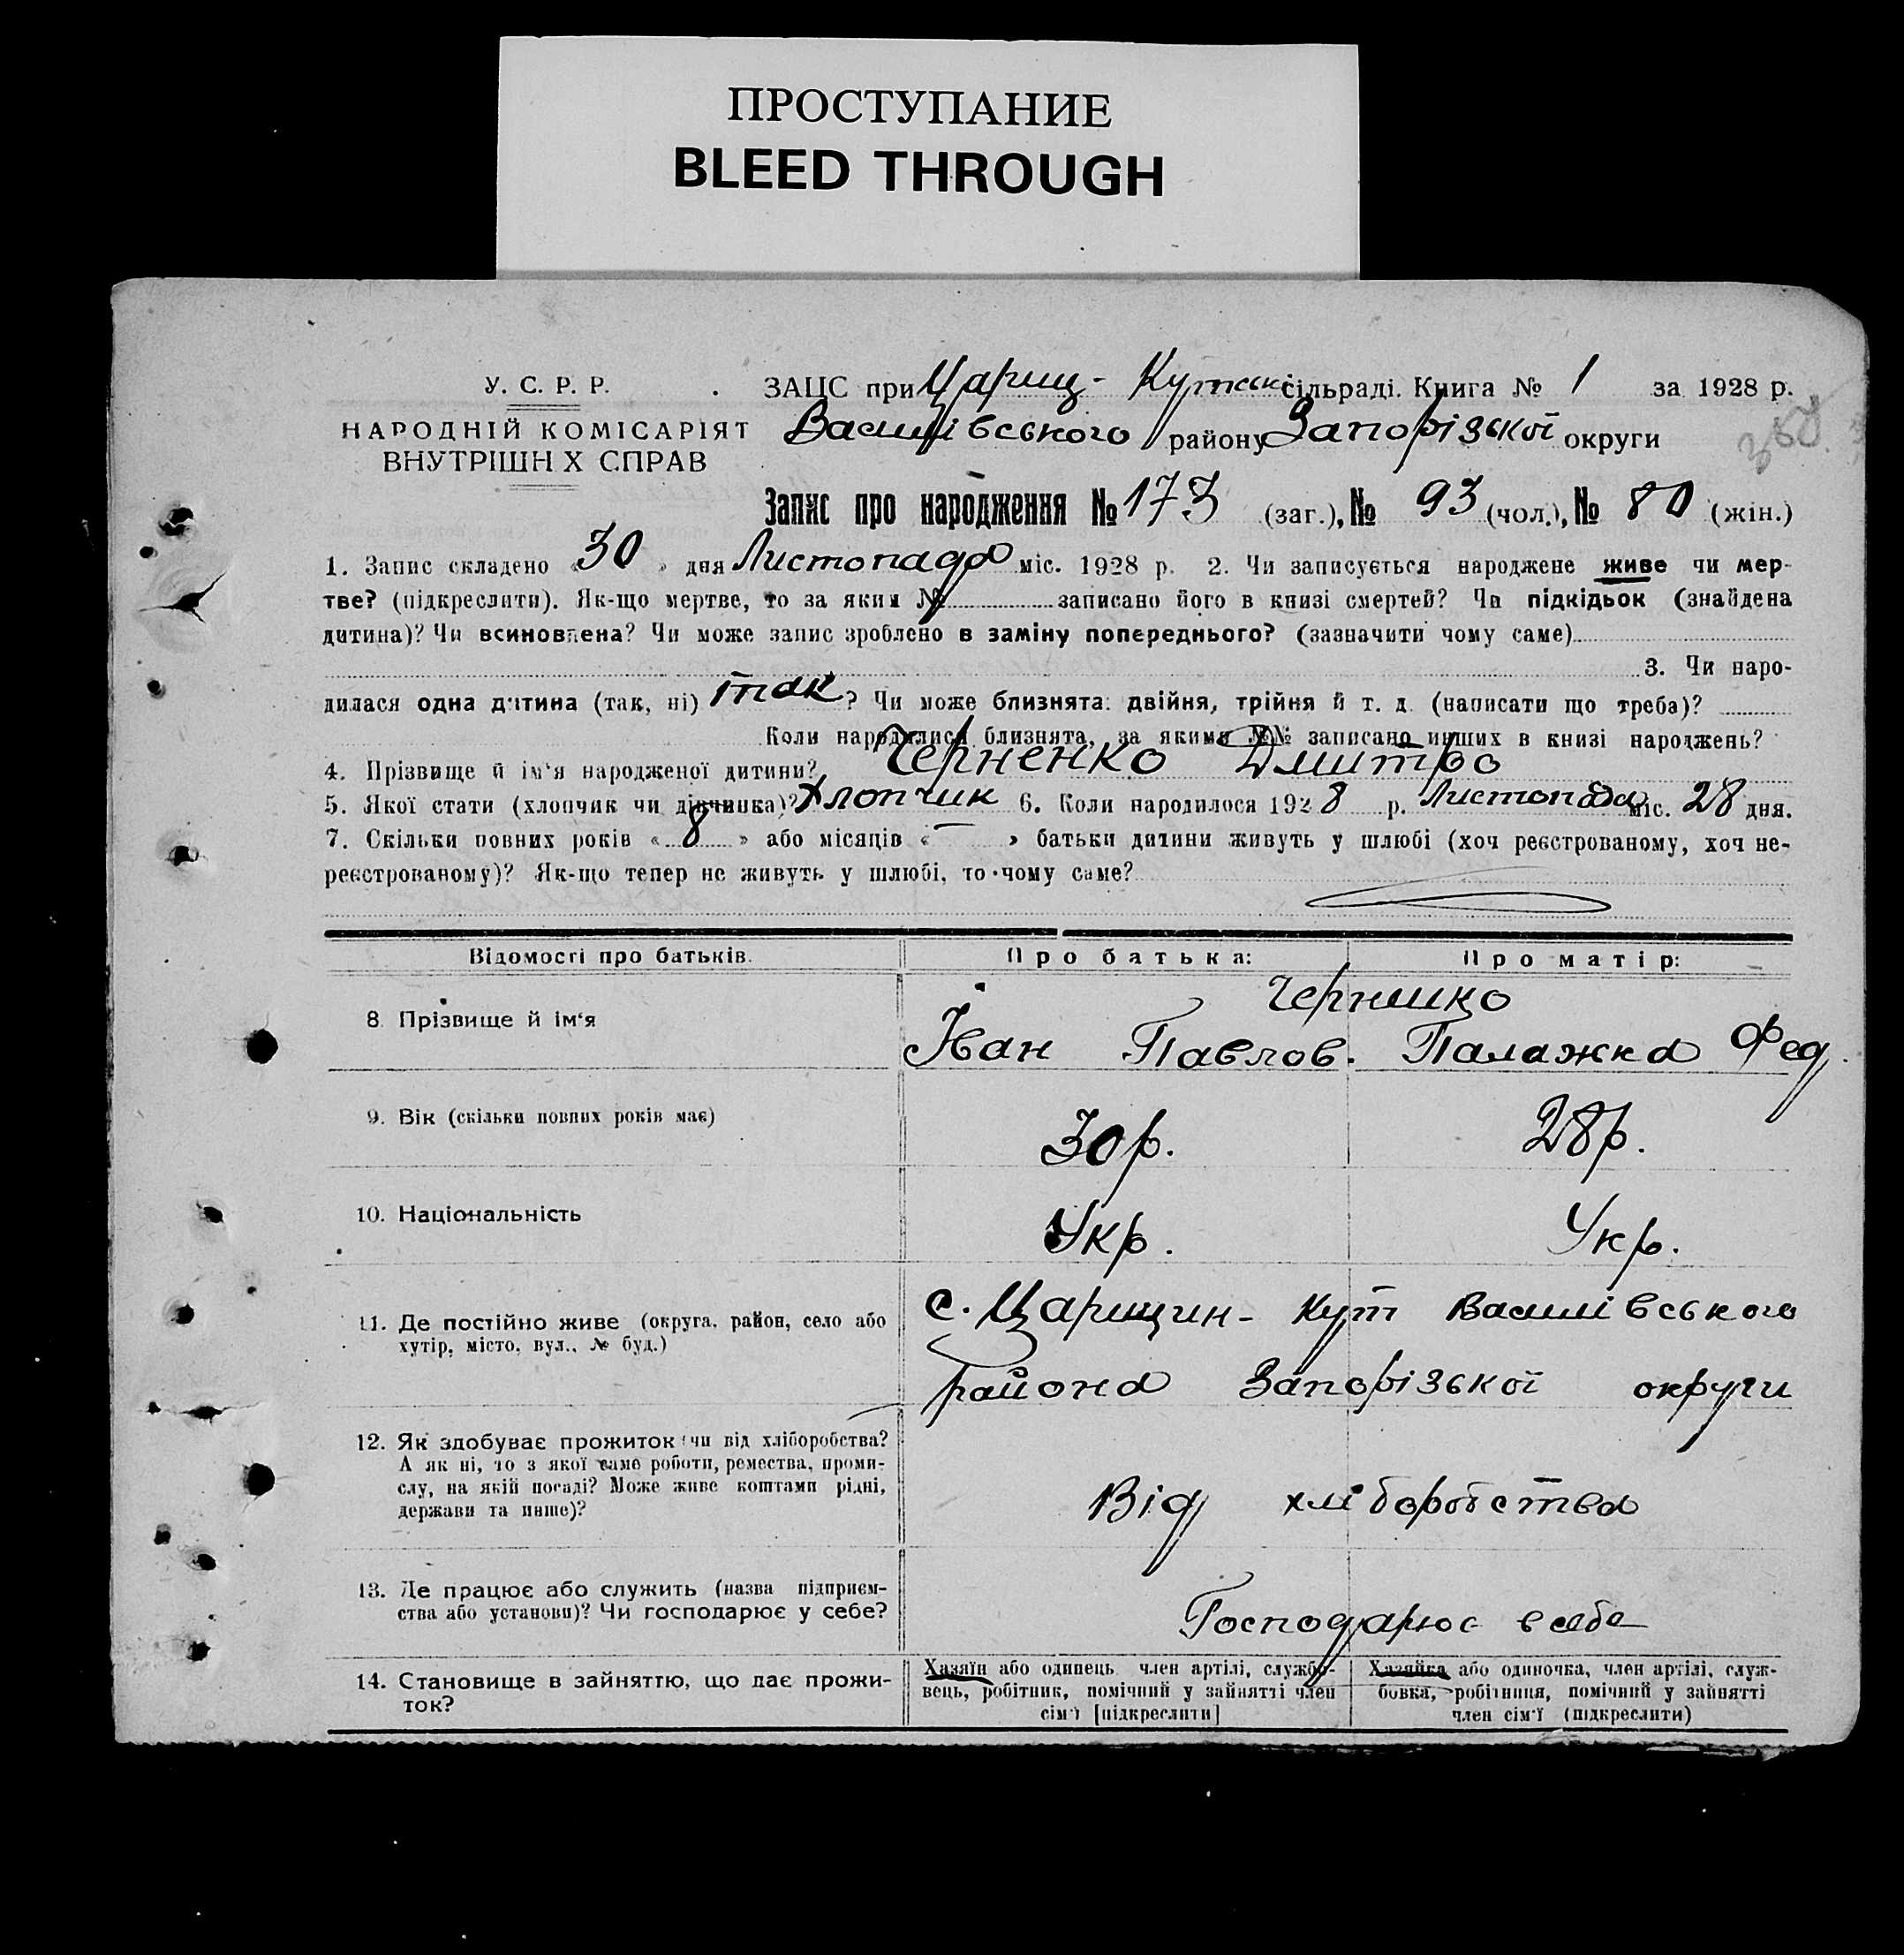 ПРОСТУПАНИЕ
BLEED THROUGH
У. С. Р. Р.
НАРОДНІЙ КОМІСАРІЯТ
ВНУТРІШН Х СПРАВ
ЗАЦС при Царищ- Кутські сільраді. Книга № 1 за 1928 р.
Василівського району Запорізької округи
Запис про народження № 173 (заг.), № 93 (чол.), № 80 (жін.)
1. Запис складено « 30 » дня Листопада міс. 1928 р. 2. Чи записується народжене живе чи мер-
тве? (підкреслити). Як-що мертве, то за яким № записано його в книзі смертей? Чи підкідьок (знайдена
дитина)? Чи всиновлена? Чи може запис зроблено в заміну попереднього? (зазначити чому саме)
3. Чи наро-
дилася одна дитина (так, ні) так ? Чи може близнята: двійня, трійня й т. д. (написати що треба)?
Коли народилися близнята, за якими №№ записано инших в книзі народжень?
4. Прізвище й ім‘я народженої дитини? Черненко Дмитро
5. Якої стати (хлопчик чи дівчинка)? Хлопчик 6. Коли народилося 192 8 р. Листопада міс. 28 дня.
7. Скільки повних років « 8 » або місяців « — » батьки дитини живуть у шлюбі (хоч реєстрованому, хоч не-
реєстрованому)? Як-що тепер не живуть у шлюбі, то чому саме?
Відомості про батьків.
Про батька:
Про матір:
8. Прізвище й ім‘я
Черненко
Іван Павлов. Палажка Фед.
9. Вік (скільки повних років має)
30 р.
28 р.
10. Національність
Укр.
Укр.
11. Де постійно живе (округа, район, село або
хутір, місто, вул., № буд.)
с. Царицин- Кут Василівського
района Запорізької округи
12. Як здобуває прожиток (чи від хліборобства?
А як ні, то з якої саме роботи, ремества, проми-
слу, на якій посаді? Може живе коштами рідні,
держави та инше)?
Від хліборобства
13. Де працює або служить (назва підприєм-
ства або установи)? Чи господарює у себе?
Господарює в себе
14. Становище в зайняттю, що дає прожи-
ток?
Хазяїн або одинець, член артілі, службо-
вець, робітник, помічний у зайнятті член
сім‘ї [підкреслити]
Хазяйка або одиночка, член артілі, служ-
бовка, робітниця, помічний у зайнятті
член сім‘ї (підкреслити)